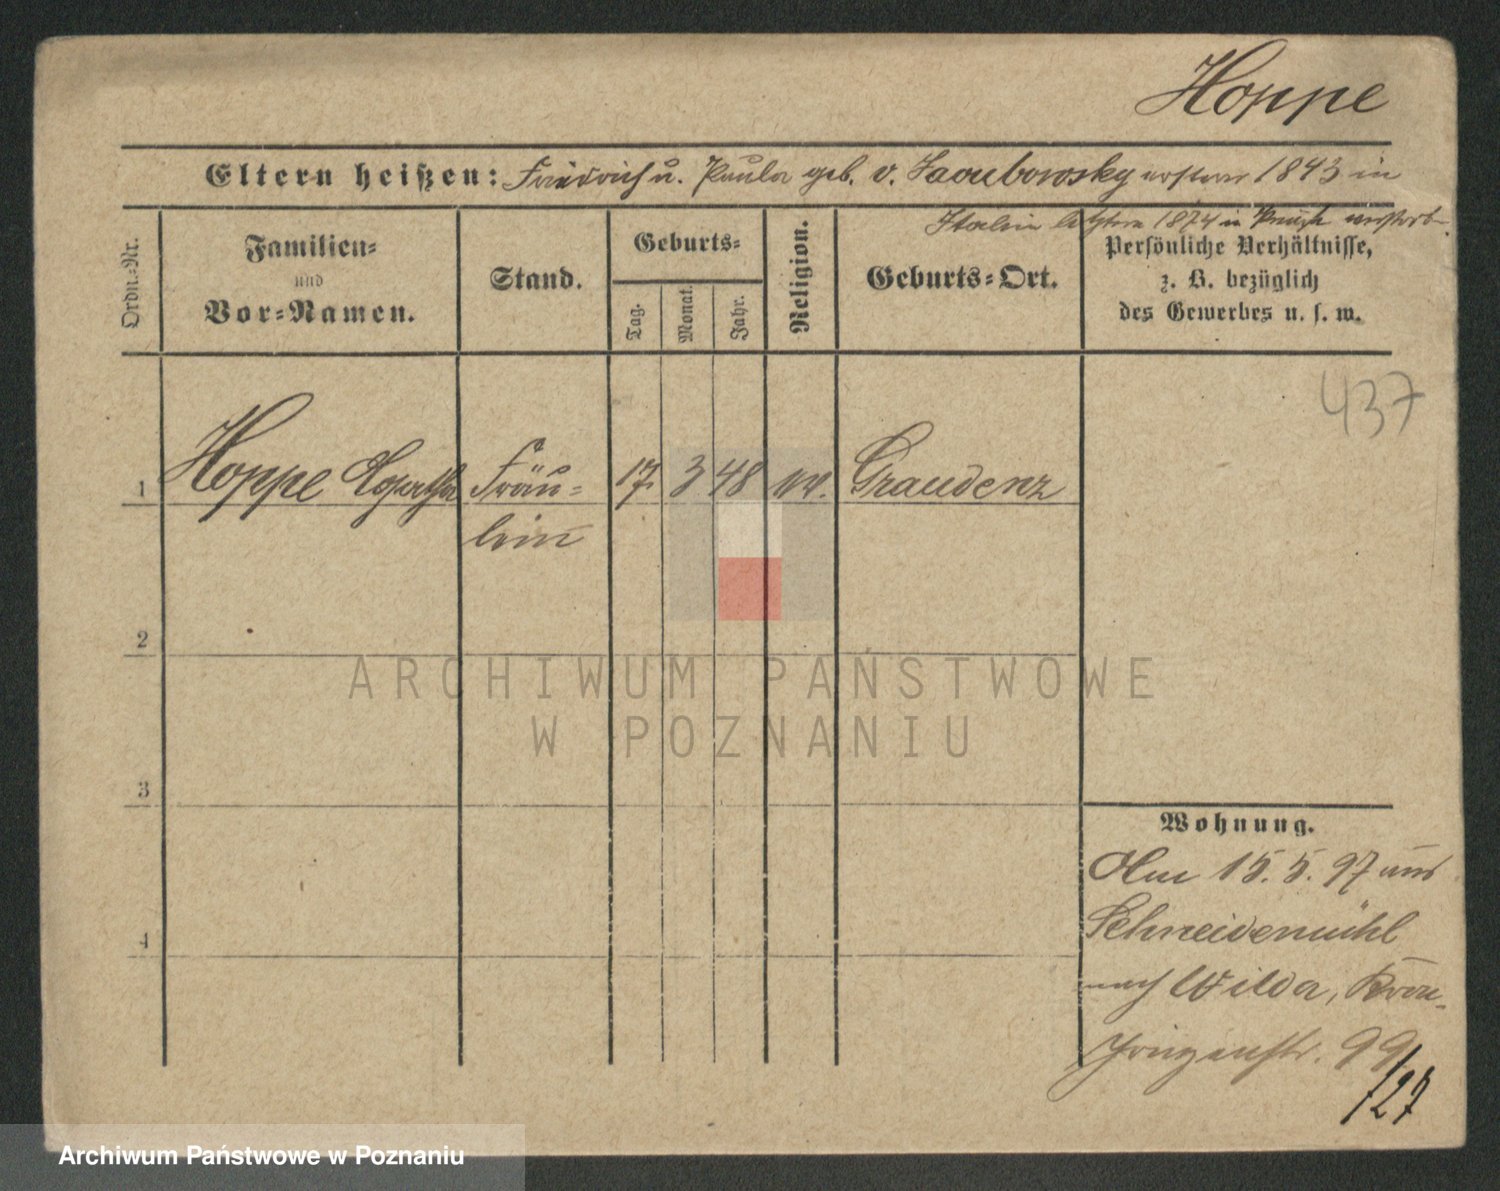 Hoppe
Eltern heißen: Friedrich u. Paula geb. v. 1843 in
Italien letztere 1874 in verstorb.
Ordn.-Nr.
Familien-
und
Vor-Namen.
Stand.
Geburts-
Tag.
Monat.
Jahr.
Religion.
Geburts-Ort.
Persönliche Verhältnisse,
z. B. bezüglich
des Gewerbes u. s. w.
437
1 Hoppe Fräu- 17. 3 48 ev. Graudenz
lein
2
3
4
ARCHIWUM PAŃSTWOWE
W POZNANIU
Wohnung.
Am 15. 5. 97 aus
Schneidemühl
nach Wilda, Kron-
prinzenstr. 99
/27
Archiwum Państwowe w Poznaniu